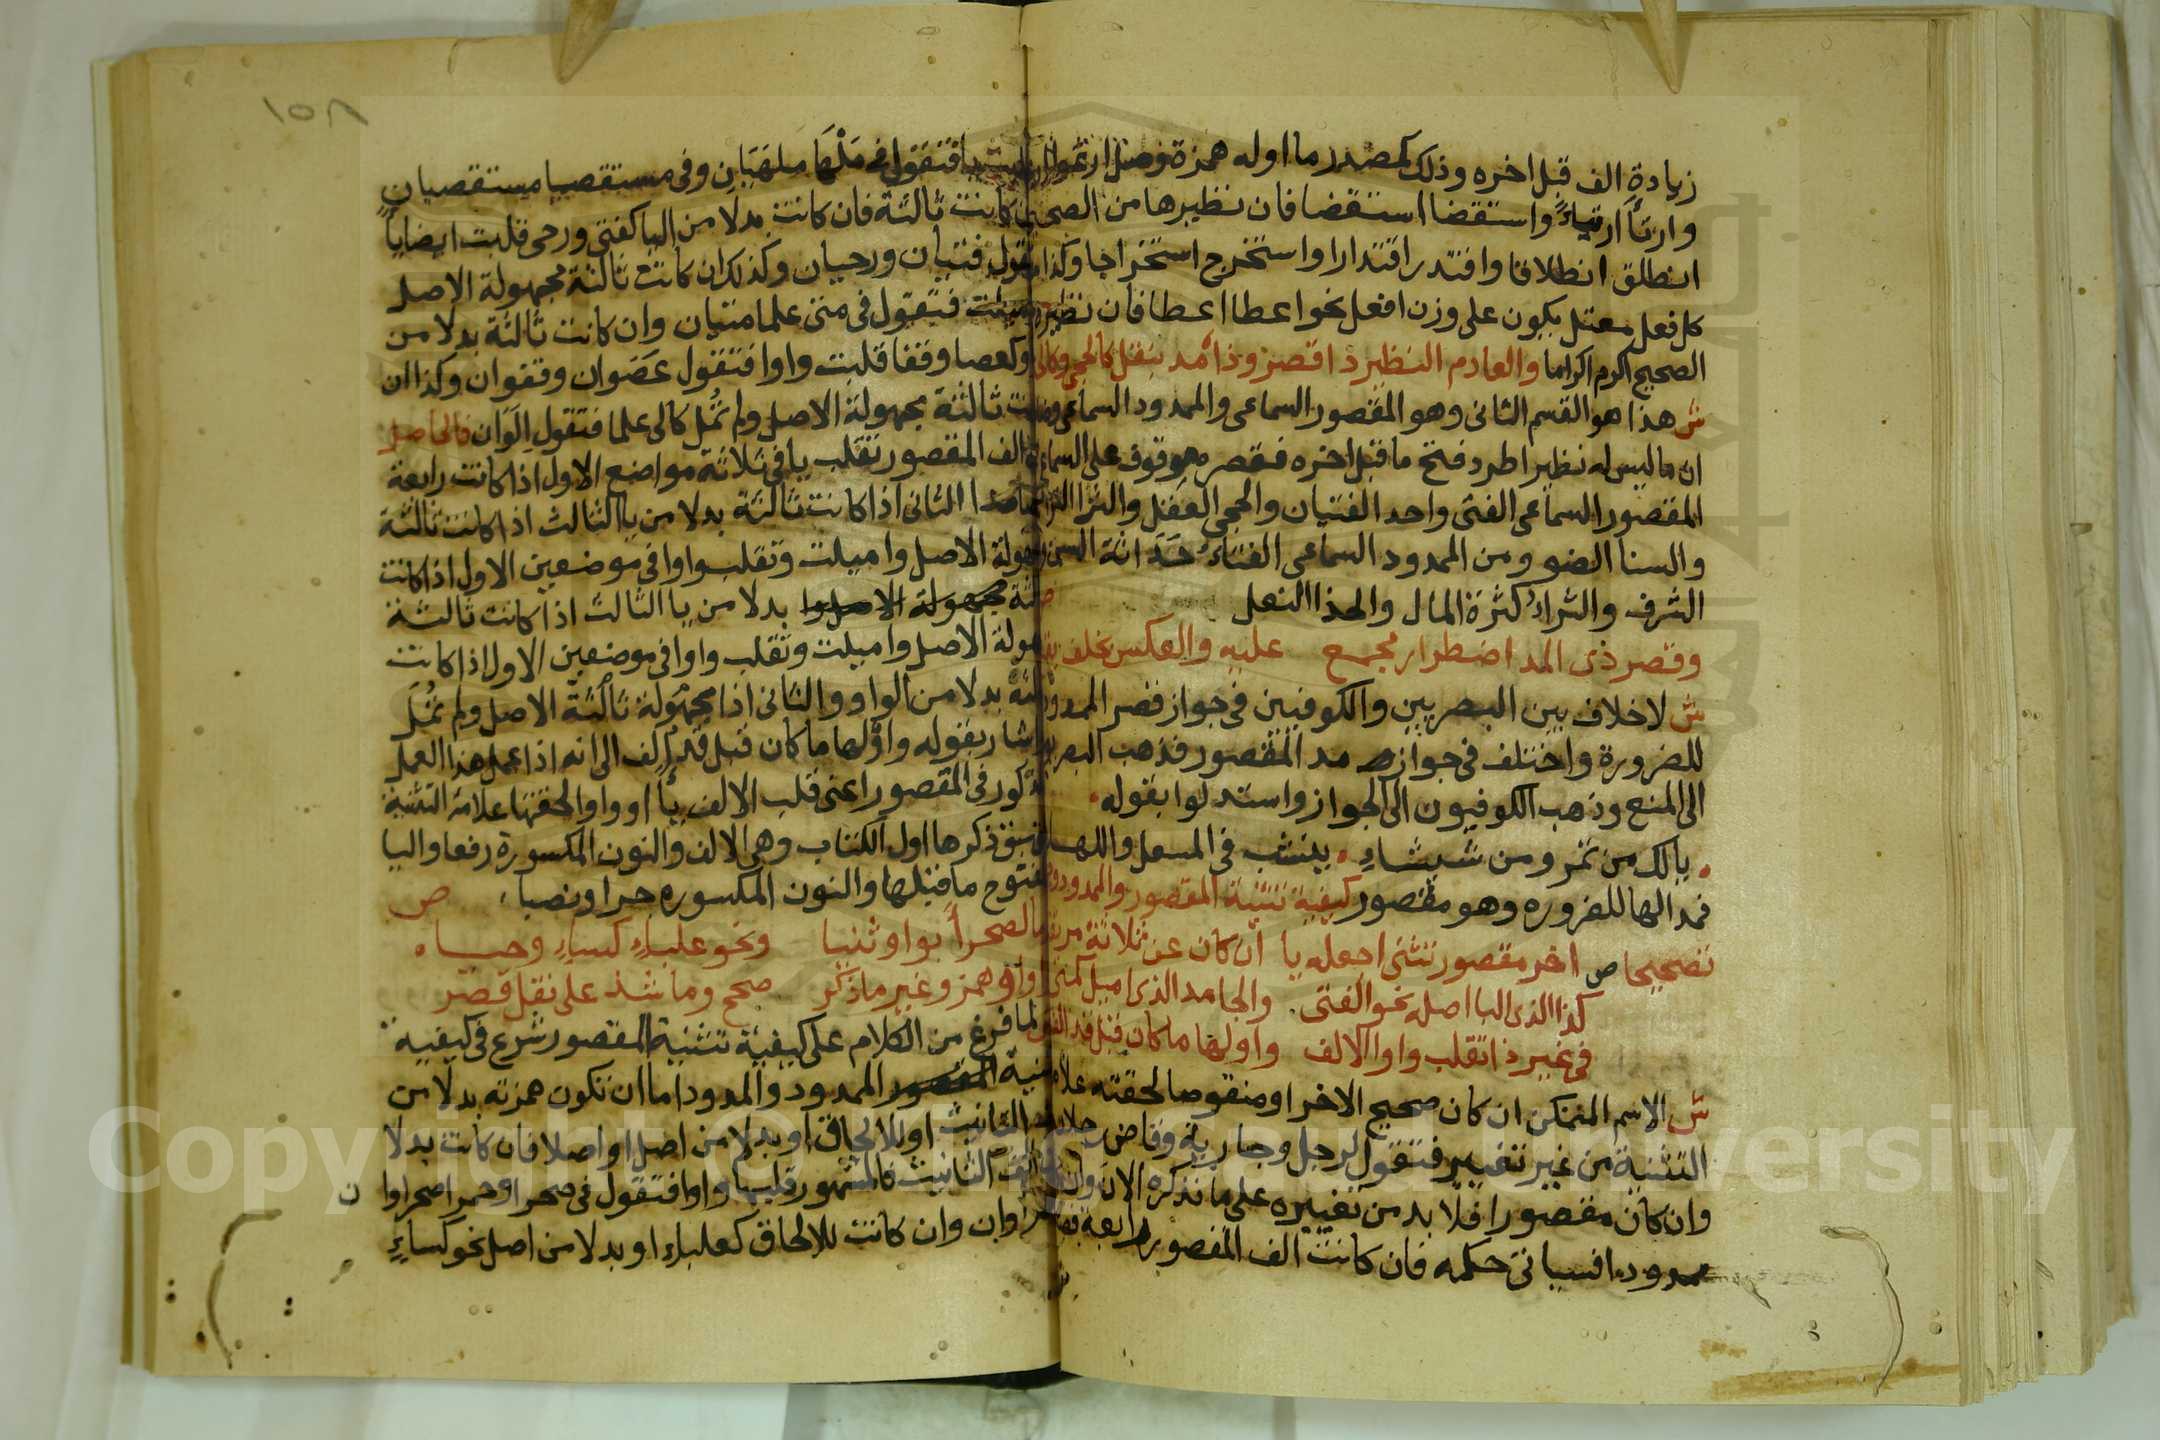 زيادة الف قبل اخره وذلك كمصدر ما اوله همزة وصل ارعوا
وارتأ ارتياءً واستقضا استقضا فان نظيرها من الصحيح
انطلق انطلاقا واقتدر اقتدارا واستخرج استخراجا وكذا
كل فعل معتل يكون على وزن افعل نحو اعطا اعطا فان نظيره
الصحيح اكرم اكراما والعادم النظير ذا قصر وذا مد بنقل كالحجى وكال
ش هذا هو القسم الثاني وهو المقصور السماعي والممدود السماعي
ان ما ليس له نظير اطرد فتح ما قبل اخره فقصره موقوف على السماع
المقصور السماعي الفتى واحد الفتيان والحجى العقل والثرا
والسنا الضو ومن الممدود السماعي الفتاءُ حَدَاثة السن
الشرف والثراءُ كثرة المال والحذا النعل
وقصر ذى المد اضطرار مجمع عليه والعكس بخلف
ش لاخلاف بين البصريين والكوفيين في جواز قصر الممدود
للضرورة واختلف في جواز مد المقصور فذهب
الى المنع وذهب الكوفيون الى الجواز واستدلوا بقوله
يالك من تمر ومن شيشاءِ ينشب في المسعل واللهـاء
فمد اللها للضروره وهو مقصور كيفية تثنية المقصور والممدود
تصحيحا ص اخر مقصور تثنى اجعله يا ان كان عن ثلاثة مرتقيا
كذا الذى اليا اصله نحو الفتى والجامد الذى اميل كمتى
في غير ذا تقلب واوا الالف واولها ما كان قبل قد الف
ش الاسم المتمكن ان كان صحيح الاخر او منقوصا لحقته علامة
التثنية من غير تغيير فتقول لرجل وجارية وقاض
وان كان مقصورا فلا بد من تغييره على ما نذكره الان وان
ممدودا فسياتى حكمه فان كانت الف المقصور رابعة
١٥٨
فتقول في مَلْهَا ملهَيَان وفى مستقصيا مستقصيان
كانت ثالثة فان كانت بدلا من اليا كفتى ورحى قلبت ايضا ياً
تقول فتيان ورحيان وكذلك ان كانت ثالثة مجهولة الاصل
فتقول في متى علما متيان وان كانت ثالثة بدلا من
وكعصا وقفا قلبت واوا فتقول عَصَوان وقفوان وكذا ان
ثالثة مجهولة الاصل ولم تُمَل كالى علما فتقول الَوَان فالحاصل
الف المقصور تقلب يا في ثلاثة مواضع الاول اذا كانت رابعة
الثانى اذا كانت ثالثة بدلا من يا الثالث اذا كانت ثالثة
الاصل واميلت وتقلب واوا في موضعين الاول اذا كانت
مجهولة الاصل بدلا من يا الثالث اذا كانت ثالثة
الاصل واميلت وتقلب واوا في موضعين الاول اذا كانت
بدلا من الواو والثاني اذا مجهولة ثالثة الاصل ولم تُمَل
بقوله واوْلها ما كان قبل قد اُلف الى انه اذا عمل هذا العمل
في المقصور اعني قلب الالف ياً او واوا لحقتها علامة التثنية
سبق ذكرها اول الكتاب وهي الالف والنون المكسورة رفعا واليا
المفتوح ما قبلها والنون المكسوره جرا ونصبا ص
الصحراً بواو ثنيا ونحو علباءٍ كساءٍ وحياه
واو همز وغير ما ذكر صحح وما شذ على نقل قصر
لما فرغ من الكلام على كيفية تثنية المقصور شرع في كيفية
تثنية المقصور الممدود والمدود اما ان تكون همزته بدلا من
التانيث او للالحاق او بدلا من اصل او اصلا فان كانت بدلا
الف التانيث فالمشهور قلبها واوا فتقول في صحرا وحمرا صحراوا ن
وان كانت للالحاق كعلباء او بدلا من اصل نحو كساءٍ
Copyright © King Saud University